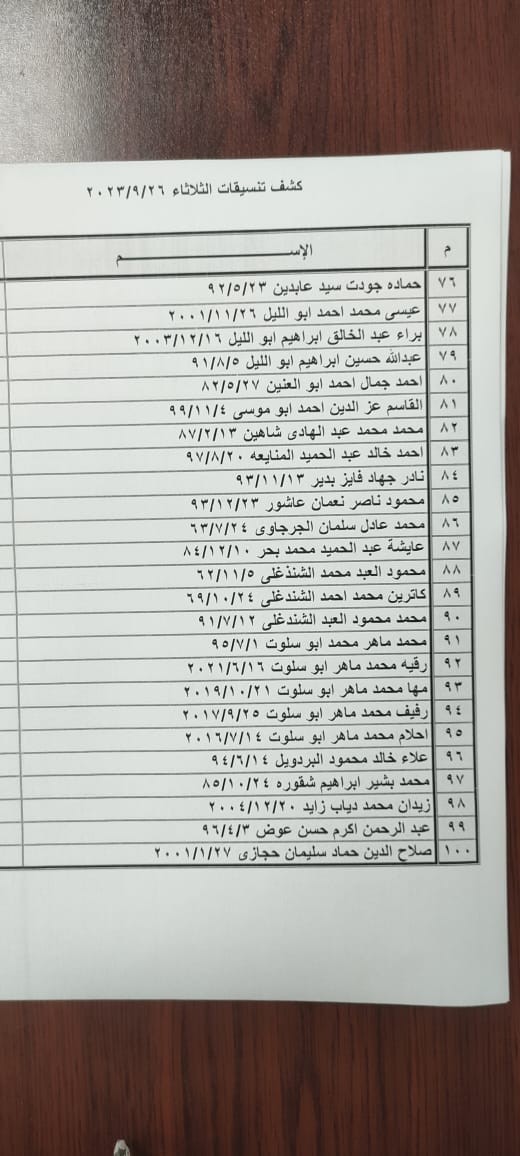 كشف تنسيقات الثلاثاء ٢٠٢٣/٩/٢٦
م الإســــــــــــم
٧٦ حماده جودت سيد عابدين ٩٢/٥/٢٣
٧٧ عيسى محمد احمد ابو الليل ٢٠٠١/١١/٢٦
٧٨ براء عبد الخالق ابراهيم ابو الليل ٢٠٠٣/١٢/١٦
٧٩ عبدالله حسين ابراهيم ابو الليل ٩١/٨/٥
٨٠ احمد جمال احمد ابو العنين ٨٢/٥/٢٧
٨١ القاسم عز الدين احمد ابو موسى ٩٩/١١/٤
٨٢ محمد محمد عبد الهادى شاهين ٨٧/٢/١٣
٨٣ احمد خالد عبد الحميد المنايعه ٩٧/٨/٢٠
٨٤ نادر جهاد فايز بدير ٩٣/١١/١٣
٨٥ محمود ناصر نعمان عاشور ٩٣/١٢/٢٣
٨٦ محمد عادل سلمان الجرجاوى ٦٣/٧/٢٤
٨٧ عايشة عبد الحميد محمد بحر ٨٤/١٢/١٠
٨٨ محمود العبد محمد الشنذغلى ٦٢/١١/٥
٨٩ كاترين محمد احمد الشندغلى ٦٩/١٠/٢٤
٩٠ محمد محمود العبد الشندغلى ٩١/٧/١٢
٩١ محمد ماهر محمد ابو سلوت ٩٥/٧/١
٩٢ رقيه محمد ماهر ابو سلوت ٢٠٢١/٦/١٦
٩٣ مها محمد ماهر ابو سلوت ٢٠١٩/١٠/٢١
٩٤ رفيف محمد ماهر ابو سلوت ٢٠١٧/٩/٢٥
٩٥ احلام محمد ماهر ابو سلوت ٢٠١٦/٧/١٤
٩٦ علاء خالد محمود البردويل ٩٤/٦/١٤
٩٧ محمد بشير ابراهيم شقوره ٨٥/١٠/٢٤
٩٨ زيدان محمد دياب زايد ٢٠٠٤/١٢/٢٠
٩٩ عبد الرحمن اكرم حسن عوض ٩٦/٤/٣
١٠٠ صلاح الدين حماد سليمان حجازى ٢٠٠١/١/٢٧